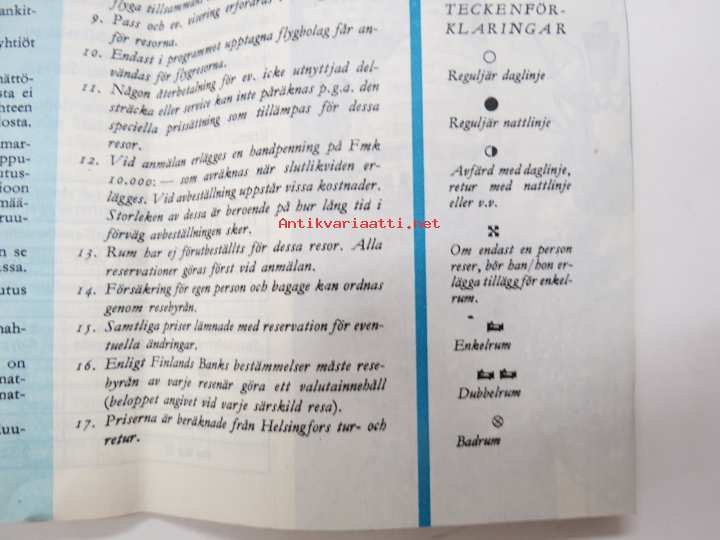 ankit-
yhtiöt
nättö-
sta ei
hteen
losta.
mar-
ppu-
utus-
ioon
mää-
ruu-
n se
assa.
utus
nah-
on
nat-
mat-
luu-
flyga tillsamman
9. Pass och ev. visering erfordras
för resorna.
10. Endast i programmet upptagna flygbolag får an-
vändas för flygresorna.
11. Någon återbetalning för ev. icke utnyttjad del-
sträcka eller service kan inte påräknas p.g.a. den
speciella prissättning som tillämpas för dessa
resor.
12. Vid anmälan erlägges en handpenning på Fmk
10.000: — som avräknas när slutlikviden er-
lägges. Vid avbeställning uppstår vissa kostnader.
Storleken av dessa är beroende på hur lång tid i
förväg avbeställningen sker.
13. Rum har ej förutbeställts för dessa resor. Alla
reservationer göras först vid anmälan.
14. Försäkring för egen person och bagage kan ordnas
genom resebyrån.
15. Samtliga priser lämnade med reservation för even-
tuella ändringar.
16. Enligt Finlands Banks bestämmelser måste rese-
byrån av varje resenär göra ett valutainnehåll
(beloppet angivet vid varje särskild resa).
17. Priserna är beräknade från Helsingfors tur- och
retur.
TECKENFÖR-
KLARINGAR
Reguljär daglinje
Reguljär nattlinje
Avfärd med daglinje,
retur med nattlinje
eller v.v.
Om endast en person
reser, bör han/hon er-
lägga tillägg för enkel-
rum.
Enkelrum
Dubbelrum
Badrum
Antikvariaatti.net